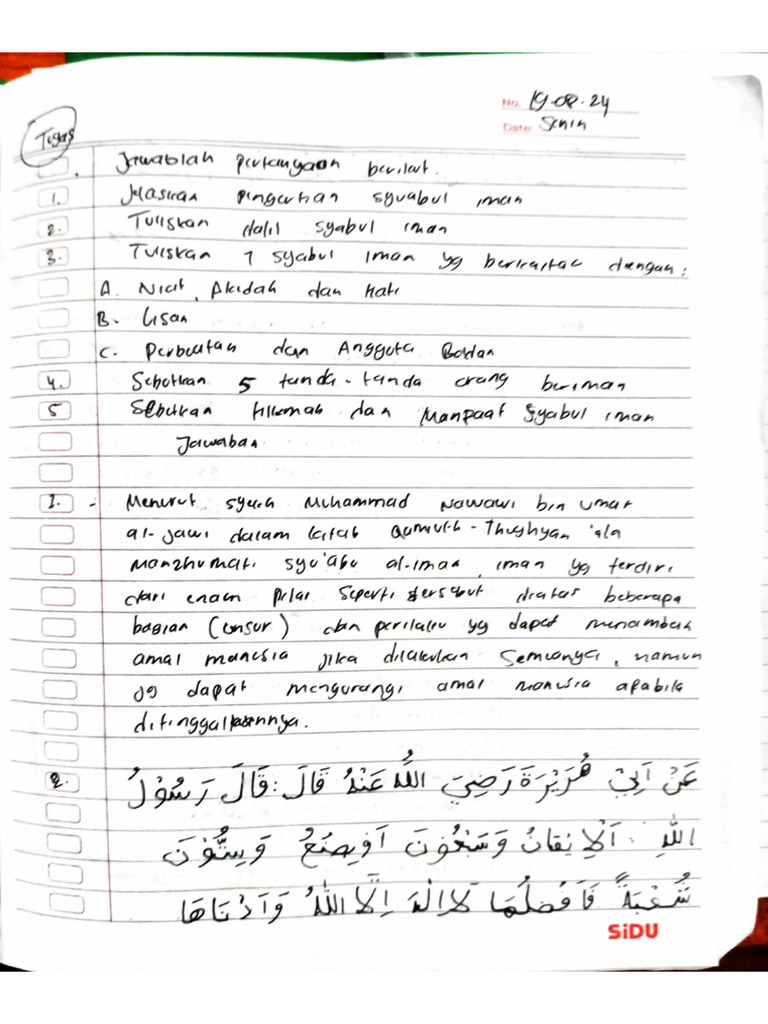 No. 19-08-24
Date: Senin
Tugas
Jawablah pertanyaan berikut.
1. Jelaskan pengertian syuabul iman
2. Tuliskan dalil syabul iman
3. Tuliskan 7 syabul iman yg berkaitan dengan:
A. Niat, Akidah dan Hati
B. Lisan
C. Perbuatan dan Anggota Badan
4. Sebutkan 5 tanda-tanda orang beriman
5 Sebutkan hikmah dan Manpaat Syabul iman
Jawaban
1. - Menurut syekh Muhammad Nawawi bin umar
al-jawi dalam kitab Qamuth-Thughyan 'ala
Manzhumati syu'abu al-iman, iman yg terdiri
dari enam pilar seperti tersebut diatas beberapa
bagian (unsur) dan perilaku yg dapat menambah
amal manusia jika dilakukan semuanya, namun
jg dapat mengurangi amal manusia apabila
ditinggalkannya.
2. عَنْ اَبِيْ هُرَيْرَةَ رَضِيَ اللّٰهُ عَنْهُ قَالَ : قَالَ رَسُوْلُ
اللّٰهِ : اَلْاِيْمَانُ وَسَبْعُوْنَ اَوْبِضْعُ وَسِتُّوْنَ
شُعْبَةً فَاَفْضَلُهَا لَا اِلٰهَ اِلَّا اللّٰهُ وَاَدْنَاهَا
SiDU